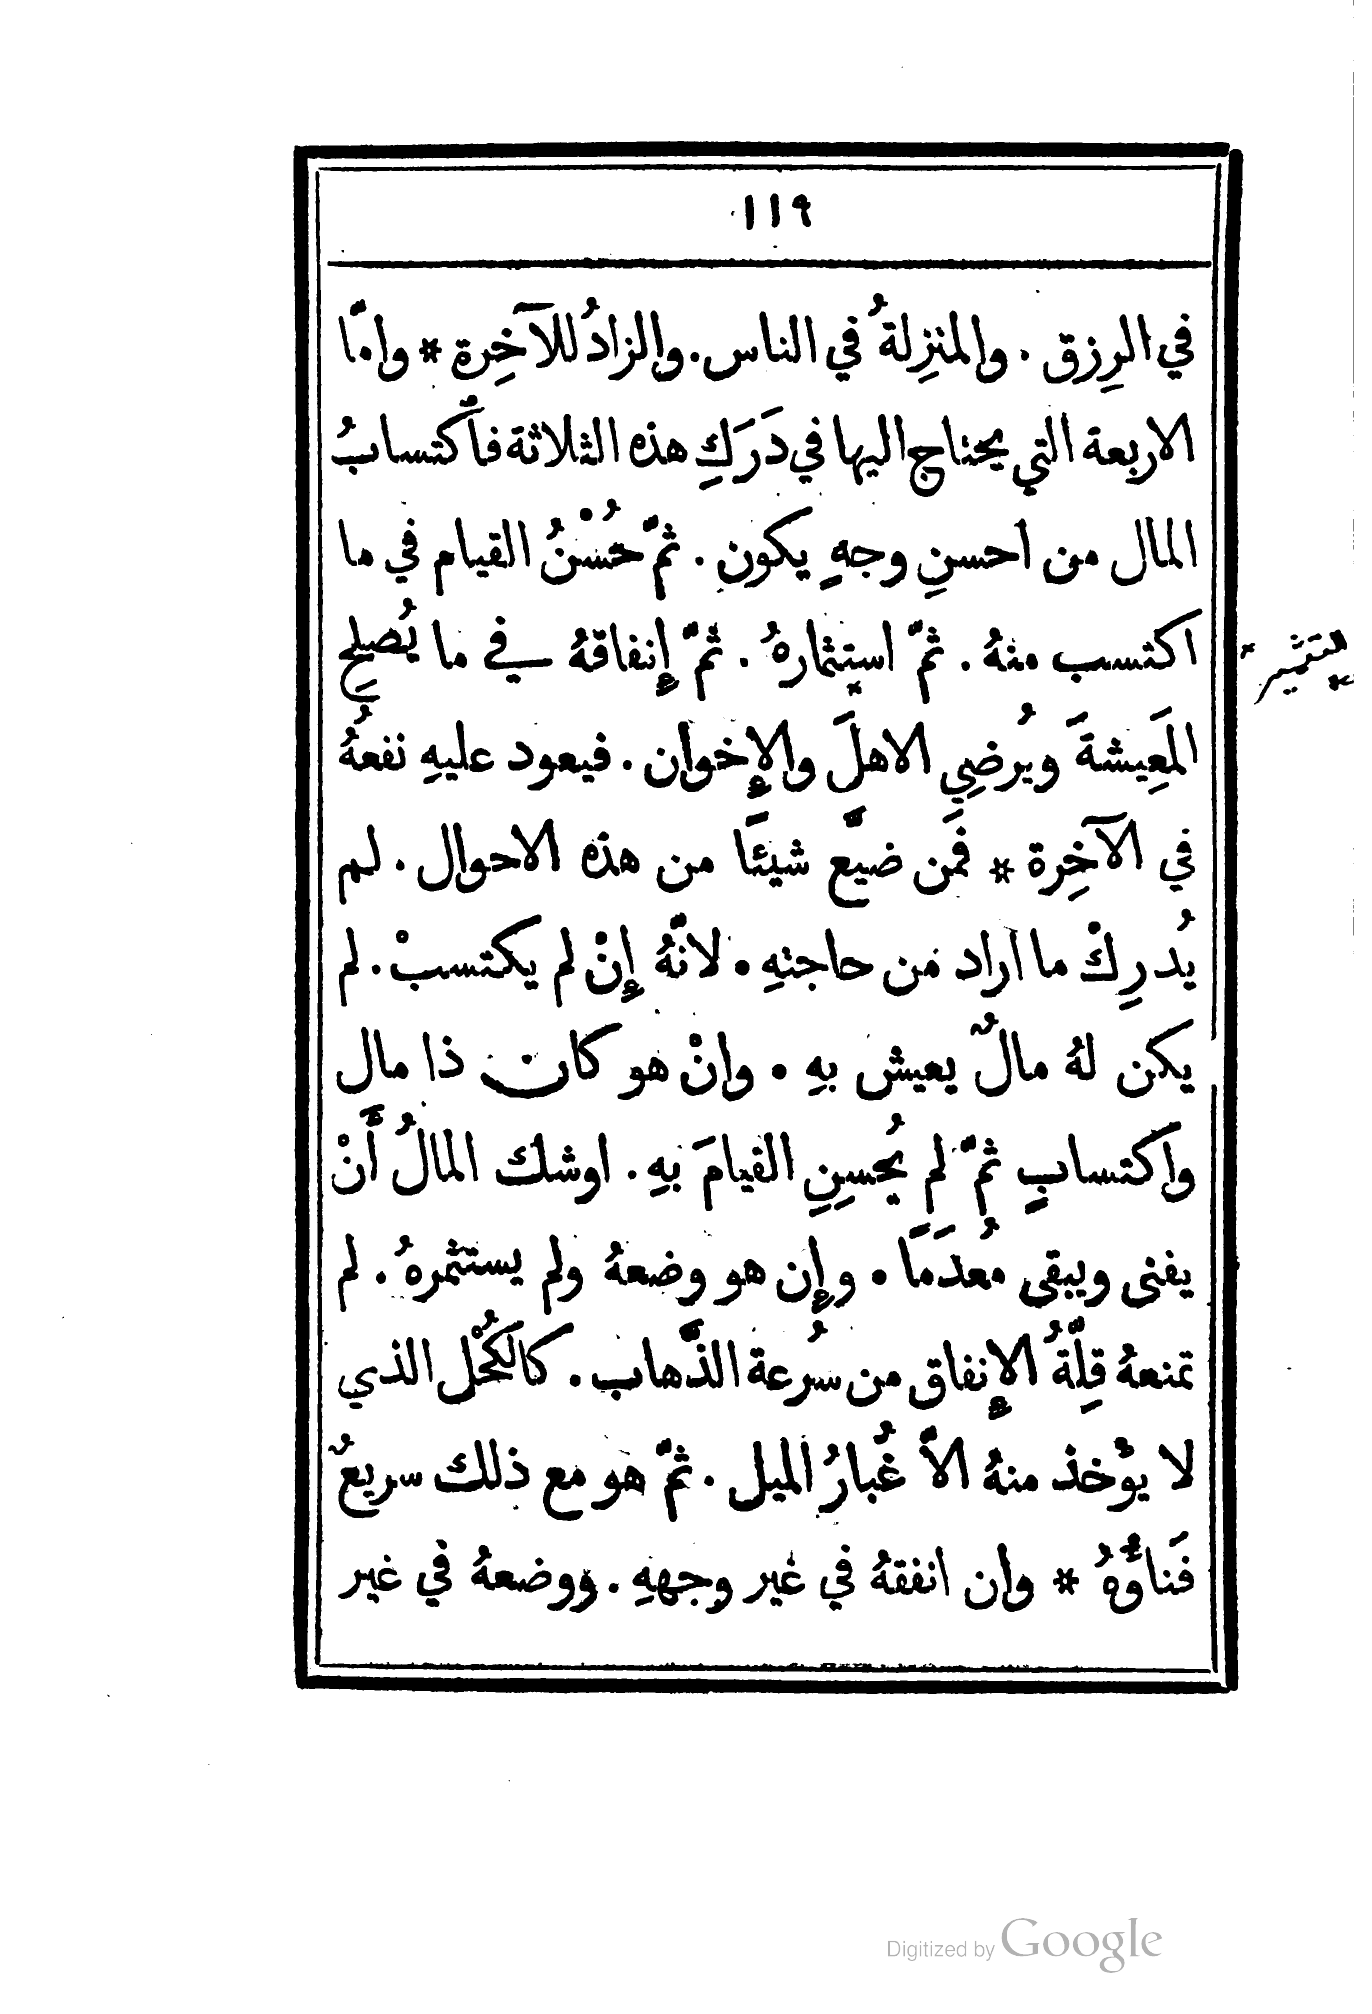 ١١٩
في الرِزق . والمنزِلةُ في الناس . والزادُ للآخِرة * وامّا
الاربعة التي يحتاج اليها في دَرَكِ هذه الثلاثة فاَكتسابُ
المال من احسنِ وجهٍ يكون . ثمّ حُسْنُ القيام في ما
اكتسب منهُ . ثمّ استِثمارهُ . ثمّ إِنفاقهُ في ما يُصلِح
المَعِيشةَ ويُرضِي الاهلَ والإِخوان . فيعود عليهِ نفعهُ
في الآخِرة * فمَن ضيّع شيئًا من هذه الاحوال . لم
يُدرِكْ ما اراد من حاجتهِ . لانّهُ إِنْ لم يكتسبْ . لم
يكن لهُ مالٌ يعيش بهِ . وانْ هو كان ذا مال
واكتسابٍ ثمّ لم يُحسِنِ القيامَ بهِ . اوشك المالُ أَنْ
يفنى ويبقى مُعدَمًا . وإِن هو وضعهُ ولم يستثمرهُ . لم
تمنعهُ قِلّةُ الإِنفاق من سُرعة الذَّهاب . كالكُحْل الذي
لا يؤْخذ منهُ الاَّ غُبارُ الميل . ثمّ هو مع ذلك سريعٌ
فَناؤُهُ * وان انفقهُ في غير وجههِ . ووضعهُ في غير
Digitized by Google